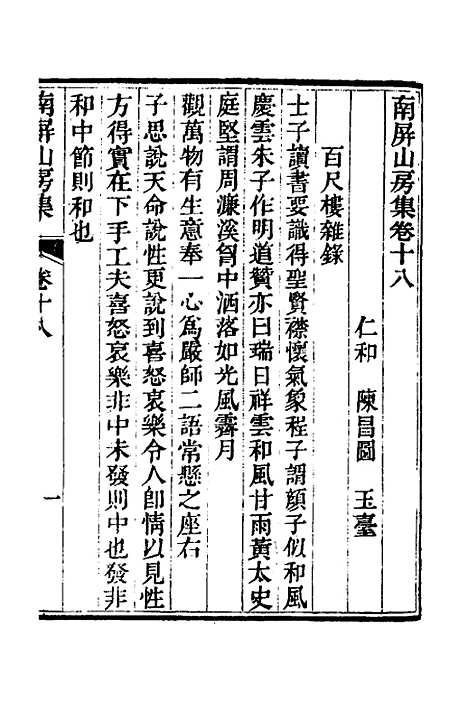 南屏山房集卷十八
仁和　陳昌圖　玉臺
百尺樓雜錄
士子讀書要識得聖賢襟懷氣象程子謂顔子似和風
慶雲朱子作明道贊亦曰瑞日祥雲和風甘雨黃太史
庭堅謂周濂溪胷中洒落如光風霽月
觀萬物有生意奉一心爲嚴師二語常懸之座右
子思說天命說性更說到喜怒哀樂令人卽情以見性
方得實在下手工夫喜怒哀樂非中未發則中也發非
和中節則和也
南屏山房集
卷十八
一